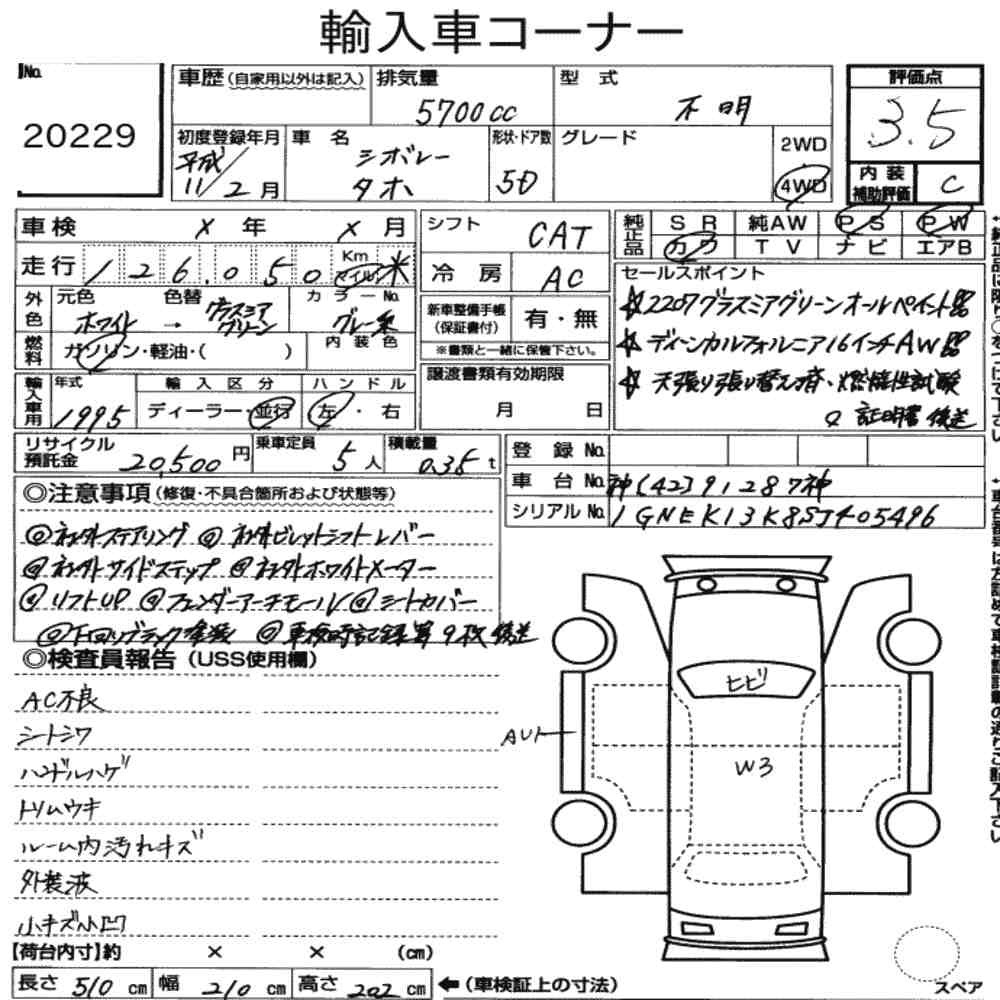 輸入車コーナー
No.
20229
車歴 (自家用以外は記入)
排気量
5700cc
型式
不明
評価点
3.5
初度登録年月
平成
11/2月
車名
シボレー
タホ
形状・ドア数
5D
グレード
2WD
4WD
内装
補助評価
C
車検 × 年 × 月
シフト
CAT
純正品
SR 純AW PS PW
カワ TV ナビ エアB
走行 126,050 Km マイル *
冷房
AC
セールスポイント
☆2207グラスミアグリーンオールペイント
☆ディーンカルフォルニア16インチAW
☆天張り張り替え済・燃焼性試験
証明書後送
外色
元色 色替 カラーNo.
ホワイト → グラスミアグリーン
グレー系
内装色
新車整備手帳
(保証書付)
有・無
※書類と一緒に保管下さい。
燃料
ガソリン・軽油・( )
譲渡書類有効期限
月 日
輸入車用
年式
1995
輸入区分
ディーラー・並行
ハンドル
左・右
リサイクル
預託金 20,500円
乗車定員 5人
積載量 0.35t
登録No.
車台No. 神(42)91287神
シリアルNo. 1GNEK13K8SJ405496
◎注意事項 (修復・不具合箇所および状態等)
◎社外ステアリング ◎社外ビレットシフトレバー
◎社外サイドステップ ◎社外ホワイトメーター
◎リフトUP ◎フェンダーアーチモール ◎シートカバー
◎下回りブラック塗装 ◎車検時記録簿9枚後送
◎検査員報告 (USS使用欄)
AC不良
シートシワ
ハンドルハゲ
トリムウキ
ルーム内汚れキズ
外装波
小キズ小凹
ヒビ
AU1
W3
【荷台内寸】約 × × (cm)
長さ 510 cm 幅 210 cm 高さ 202 cm
←(車検証上の寸法)
スペア